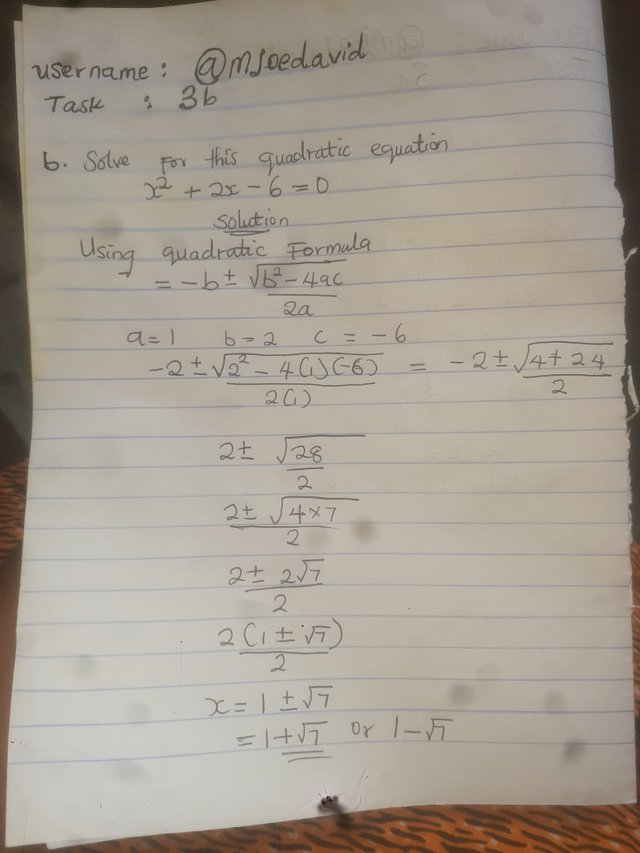 username: @msoedavid
Task : 3b
b. Solve For this quadratic equation
x² + 2x - 6 = 0
Solution
Using quadratic Formula
= -b ± √b² - 4ac
2a
a=1 b=2 c = -6
-2 ± √2² - 4(1)(-6) = -2 ± √4 + 24
2(1) 2
2 ± √28
2
2 ± √4×7
2
2 ± 2√7
2
2(1 ± √7)
2
x = 1 ± √7
= 1+√7 or 1-√7